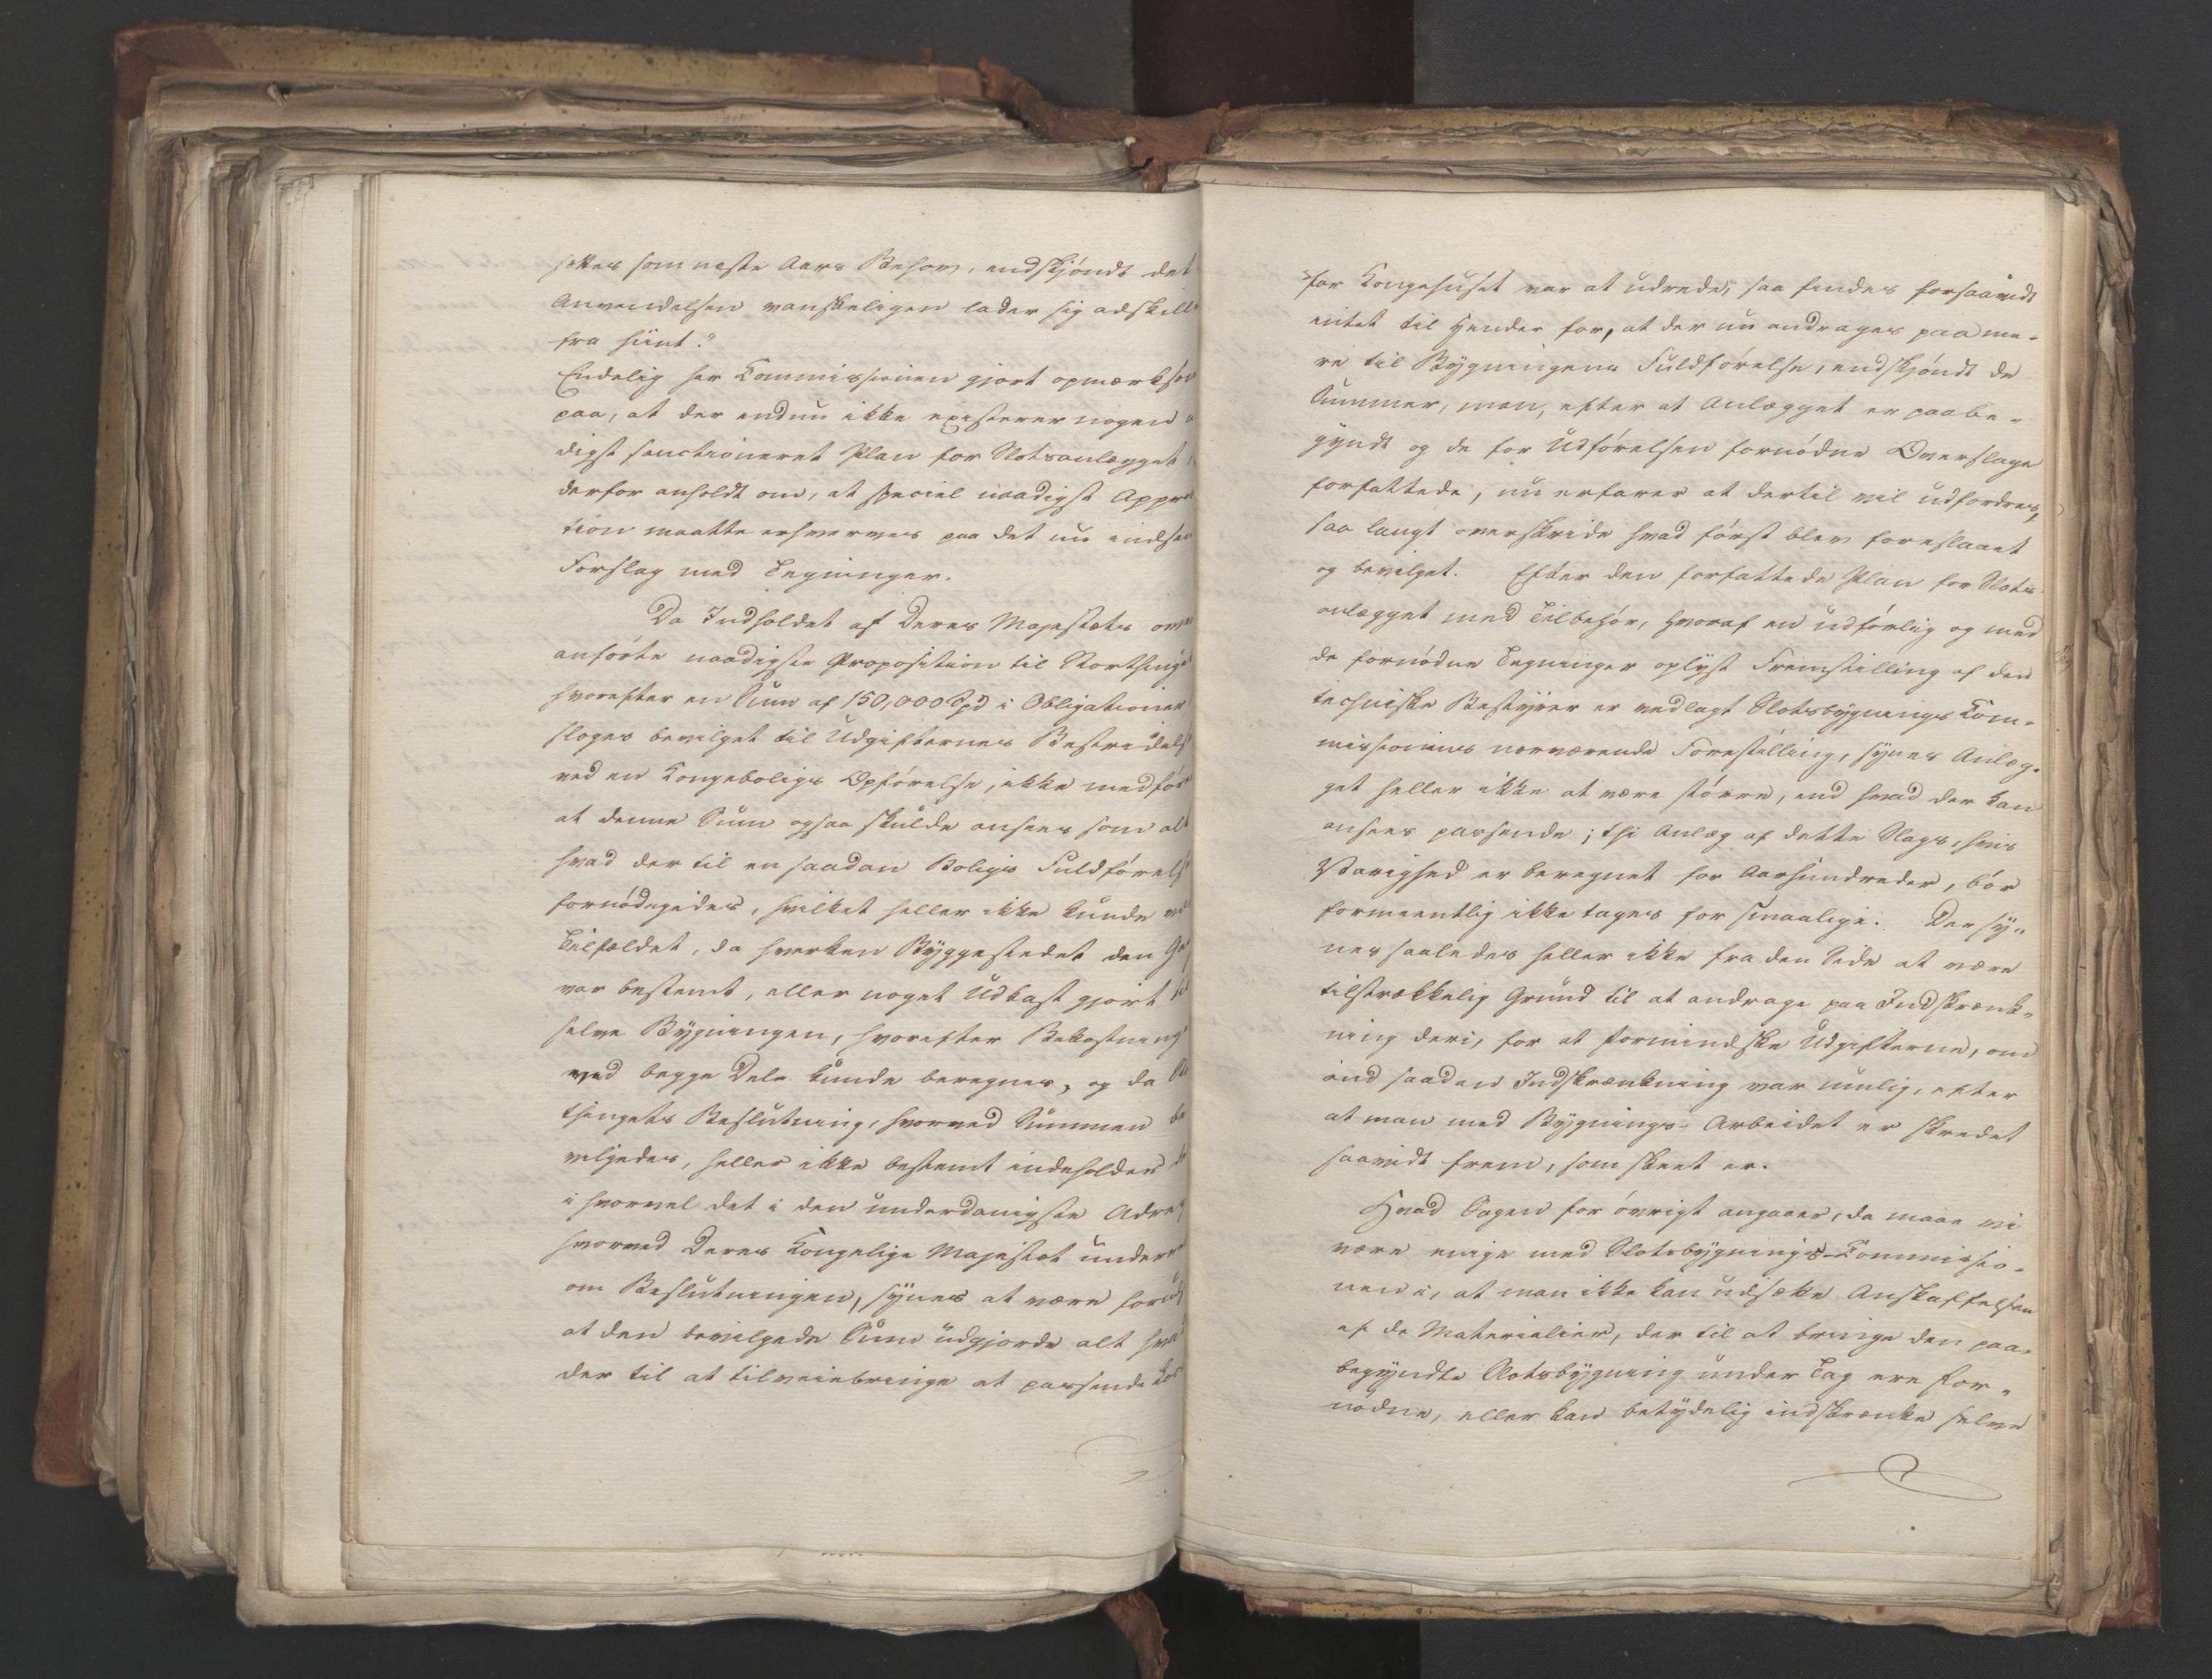 sættes som næste Aars Behov, endskjöndt det
Anvendelsen vanskeligen lader sig adskille
fra hiint."
Endelig har Kommissionen gjort opmærksom
paa, at der endnu ikke existerer nogen
digst sanctioneret Plan for Slotsanlægget
derfor anholdt om, at speciel naadigst Appro
tion maatte erhverves paa det nu indsen
Forslag med Tegninger.
Da Indholdet af Deres Majestæts oven
anförte naadigste Proposition til Storthinget
hvorefter en Sum af 150,000 Spd i Obligationer
sloges bevilget til Udgifternes Bestridelse
ved en Kongeboligs Opförelse, ikke medförer
at denne Sum ogsaa skulde ansees som alt
hvad der til en saadan Boligs Fuldförelse
fornödigedes, hvilket heller ikke kunde
Tilfældet, da hverken Byggestedet den Gang
var bestemt, eller noget Udkast gjort til
selve Bygningen, hvorefter Bekostning
ved begge Dele kunde beregnes, og da Stor
thingets Beslutning, hvorved Summen be
vilgedes, heller ikke bestemt indeholder
ihvorvel det i den underdanigste Adresse
hvorved Deres Kongelige Majestæt underr
om Beslutningen, synes at være foruds
at den bevilgede Sum udgjorde alt hvad
der til at tilveiebringe et passende
for Kongehuset var at udrede, saa findes forsaavidt
intet til Hinder for, at der nu andrages paa me-
re til Bygningens Fuldförelse, endskjöndt de
Summer, man, efter at Anlægget er paabe-
gyndt og de for Udförelsen fornödne Overslage
forfattede, nu erfarer at dertil vil udfordres,
saa langt overskride hvad först blev foreslaaet
og bevilget. Efter den forfattede Plan for Slots
anlægget med Tilbehör, hvoraf en udförlig og med
de fornödne Tegninger oplyst Fremstilling af den
techniske Bestyrer er vedlagt Slotsbygnings Kom-
missionens nærværende Forestilling, synes Anlæg-
get heller ikke at være större, end hvad der kan
ansees passende; thi Anlæg af dette Slags, hvis
Varighed er beregnet for Aarhundreder, bör
formeentlig ikke tages for smaalige. Der sy-
nes saaledes heller ikke fra den Side at være
tilstrækkelig Grund til at andrage paa Indskrænk-
ning deri, for at formindske Udgifterne, om
end saadan Indskrænkning var mulig, efter
at man med Bygnings-Arbeidet er skredet
saavidt frem, som skeet er.
Hvad Sagen for övrigt angaaer, da maae vi
være enige med Slotsbygnings-Kommissio-
nen i, at man ikke kan udsætte Anskaffelsen
af de Materialier, der til at bringe den paa-
begyndte Slotsbygning under Tag ere for-
nödne, eller kan betydelig indskrænke selve